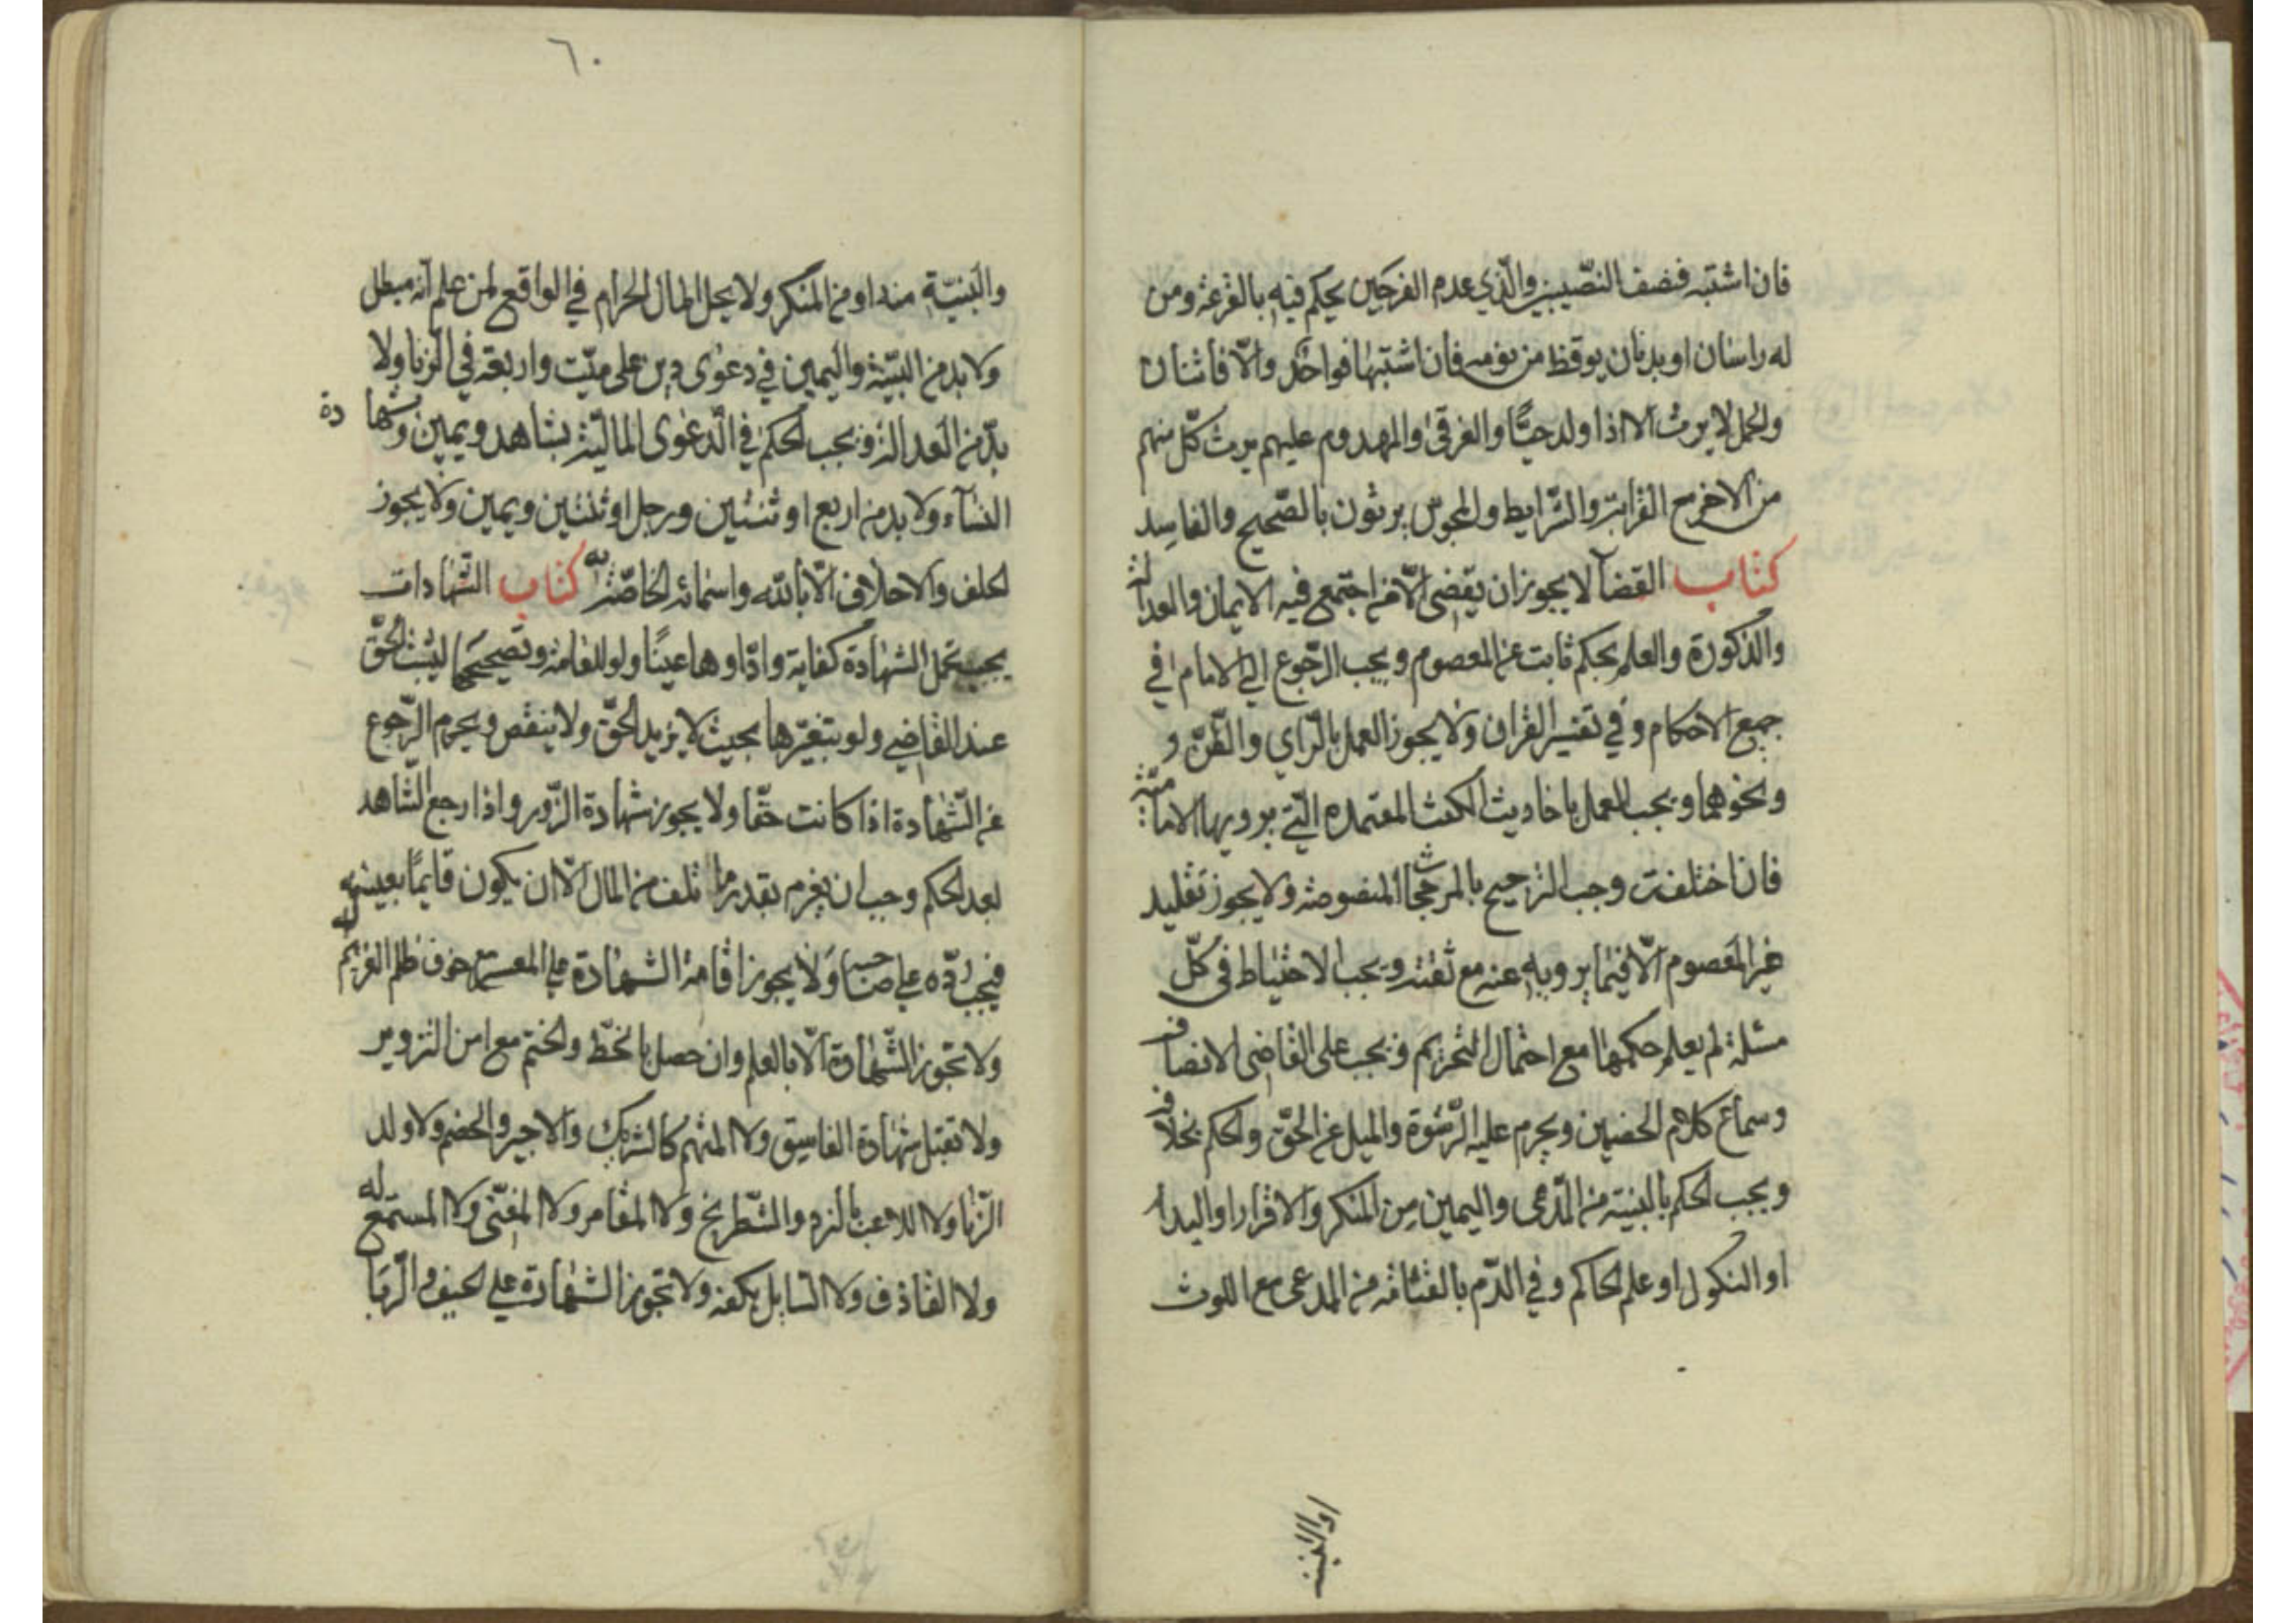 فان اشتبه فنصف النصّيبين والّذي عدم الفرجين يحكم فيه بالقرعة ومن
له راسان او بدنان يوقظ من نومه فان اشتبها فواحد والّا فاثنان
والحمل لا يرث الا اذا ولد حيًّا والغرقى والمهدوم عليهم يرث كلّ منهم
من الاخر مع القرابة والشّرايط والمجوس يرثون بالصّحيح والفاسد
كتاب القضآ لا يجوز ان يقضى الّا من اجتمع فيه الايمان والعدالة
والذّكورة والعلم بحكم ثابت عن المعصوم ويجب الرّجوع الى الامام في
جميع الاحكام وفي تفسير القران ولا يجوز العمل بالرّاي والظّنّ و
ونحوهما ويجب العمل باحاديث الكتب المعتمده الّتي يرويها الاماميّة
فان اختلفت وجب الترجيح بالمرجحات المنصوصة ولا يجوز تقليد
غير المعصوم الّا فيما يرويه عنه مع ثقته ويجب الاحتياط فى كلّ
مسئلة لم يعلم حكمها مع احتمال التحريم ويجب على القاضى الانصاف
وسماع كلام الخصمين ويحرم عليه الرّشوة والميل عن الحقّ والحكم بخلافه
ويجب الحكم بالبينة من المّدعى واليمين من المنكر والاقرار او اليد
او النكول او علم الحاكم وفي الدّم بالقسامة من المدعى مع اللوث
او البينة
٦٠
والبنيّة منه او من المنكر ولا يحل المال الحرام في الواقع لمن علم انّه مبطل
ولا بد من البيّنة واليمين في دعوى دين على ميّت واربعة في الزنا ولا
بدّ من العدالة ويجب الحكم في الدّعوى الماليّة بشاهد ويمين وشهادة
النسآء ولا بد من اربع او ثنتين ورجل او ثنتين ويمين ولا يجوز
الحلف والاحلاف الّا بالله واسمائه الخاصّة به كتاب الشهادات
يجب تحمل الشهادة كفاية واداؤها عينًا ولو للعامة وتصحيحها ليثبت الحقّ
عند القاضي ولو بتغيّرها بحيث لا يزيد الحقّ ولا ينقص ويحرم الرّجوع
عن الشّهادة اذا كانت حقّا ولا يجوز شهادة الزّور واذا رجع الشاهد
بعد الحكم وجب ان يغرم بقدر ما تلف من المال الّا ان يكون قايمًا بعينه
فيجب ردّه على صاحبه ولا يجوز اقامة الشهادة على المعسر مع خوف ظلم الغريم له
ولا تجوز الشّهادة الّا بالعلم وان حصل بالخطّ والختم مع امن التزوير
ولا تقبل شهادة الفاسق ولا المتهم كالشريك والاجير والخصم ولا ولد
الزّنا ولا اللاعب بالنرد والشّطرنج ولا المقامر ولا المغنّى ولا المستمع له
ولا القاذف ولا السايل بكفه ولا تجوز الشهادة على الحيف والرّبا